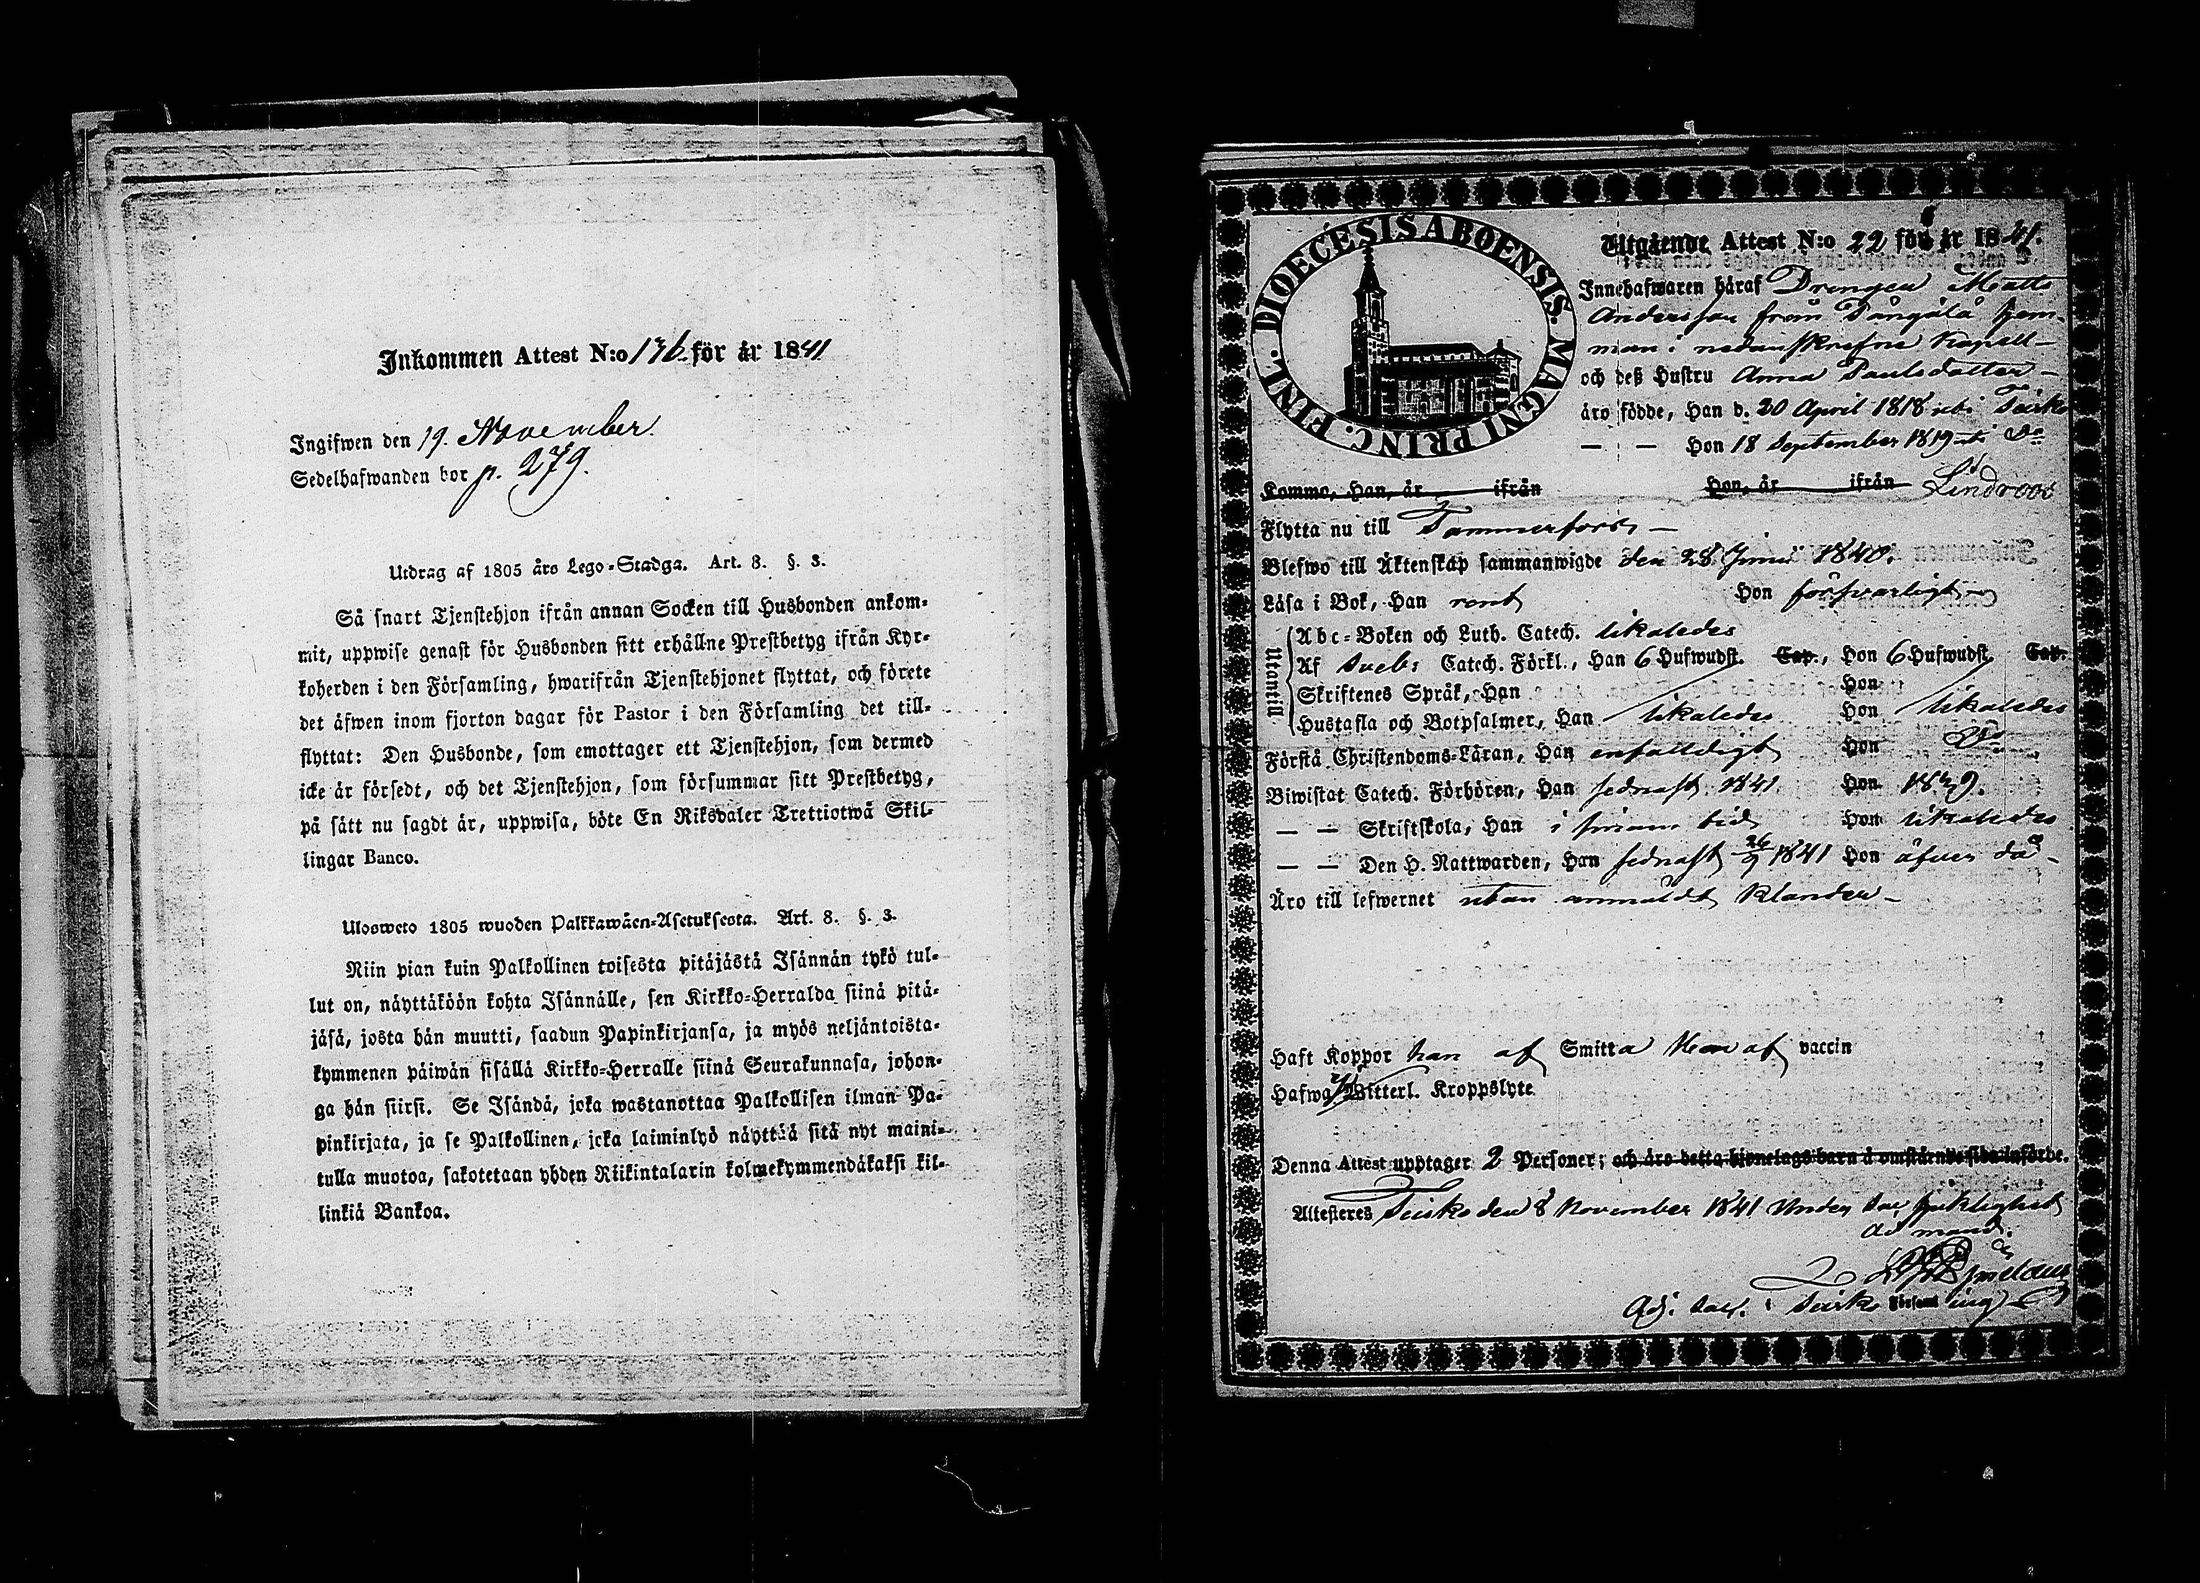 Inkommen Attest N:o 136 för år 1841
Ingifwen den 19. November.
Sedelhafwanden bor p. 279.
Utdrag af 1805 års Lego-Stadga. Art. 8. §. 3.
Så snart Tjenstehjon ifrån annan Socken till Husbonden ankom-
mit, uppwise genast för Husbonden sitt erhållne Prestbetyg ifrån Kyr-
koherden i den Församling, hwarifrån Tjenstehjonet flyttat, och förete
det äfwen inom fjorton dagar för Pastor i den Församling det till-
flyttat: Den Husbonde, som emottager ett Tjenstehjon, som dermed
icke är försedt, och det Tjenstehjon, som försummar sitt Prestbetyg,
på sätt nu sagdt är, uppwisa, böte En Riksdaler Trettiotwå Skil-
lingar Banco.
Ulosweto 1805 wuoden Palkkawäen-Asetuksesta. Art. 8. §. 3.
Niin pian kuin Palkollinen toisesta pitäjästä Isännän tykö tul-
lut on, näyttäköön kohta Isännälle, sen Kirkko-Herralda siinä pitä-
jäsä, josta hän muutti, saadun Papinkirjansa, ja myös neljäntoista-
kymmenen päiwän sisällä Kirkko-Herralle siinä Seurakunnasa, johon-
ga hän siirsi. Se Isändä, joka wastanottaa Palkollisen ilman Pa-
pinkirjata, ja se Palkollinen, joka laiminlyö näyttää sitä nyt maini-
tulla muotoa, sakotetaan yhden Riikintalarin kolmekymmendäkaksi kil-
linkiä Bankoa.
DIOECESIS ABOENSIS. MAGNI PRINC. FINL.
Utgående Attest N:o 22 för år 1841.
Innehafwaren häraf Drengen Matts
Andersson från Pångälä hem-
man i nedanskrefne Kapell
och deß Hustru Anna Paulsdotter
äro födde, Han d. 20 April 1818 uti Teisko
— — Hon 18 September 1819 uti Do
Komma, Han, år ifrån Hon, år ifrån Lindroos
Flytta nu till Tammerfors
Blefwo till Äktenskap sammanwigde den 28 Junii 1840.
Läsa i Bok, Han rent Hon försvarligt
Utantill
Abc-Boken och Luth. Catech. likaledes
Af Sveb: Catech. Förkl., Han 6 Hufwudst. Cap., Hon 6 Hufwudst. Cap.
Skriftenes Språk, Han Hon
Hustafla och Botpsalmer, Han likaledes Hon likaledes
Förstå Christendoms-Läran, Han enfaldigt Hon Do
Biwistat Catech. Förhören, Han sednast 1841 Hon 1839.
— — Skriftskola, Han i sinom tid Hon likaledes
— — Den H. Nattwarden, Han sednast 26/9 1841 Hon äfven då
Äro till lefwernet utan anmäldt klander
Haft Koppor han af Smitta Hon af vaccin
Hafwa Witterl. Kroppslyte
Denna Attest upptager 2 Personer; och äro detta hjonelags barn å omstående sida införde.
Attesteres Teisko den 8 November 1841 Under
ad mand:
Adj. Sac. i Teisko Församling